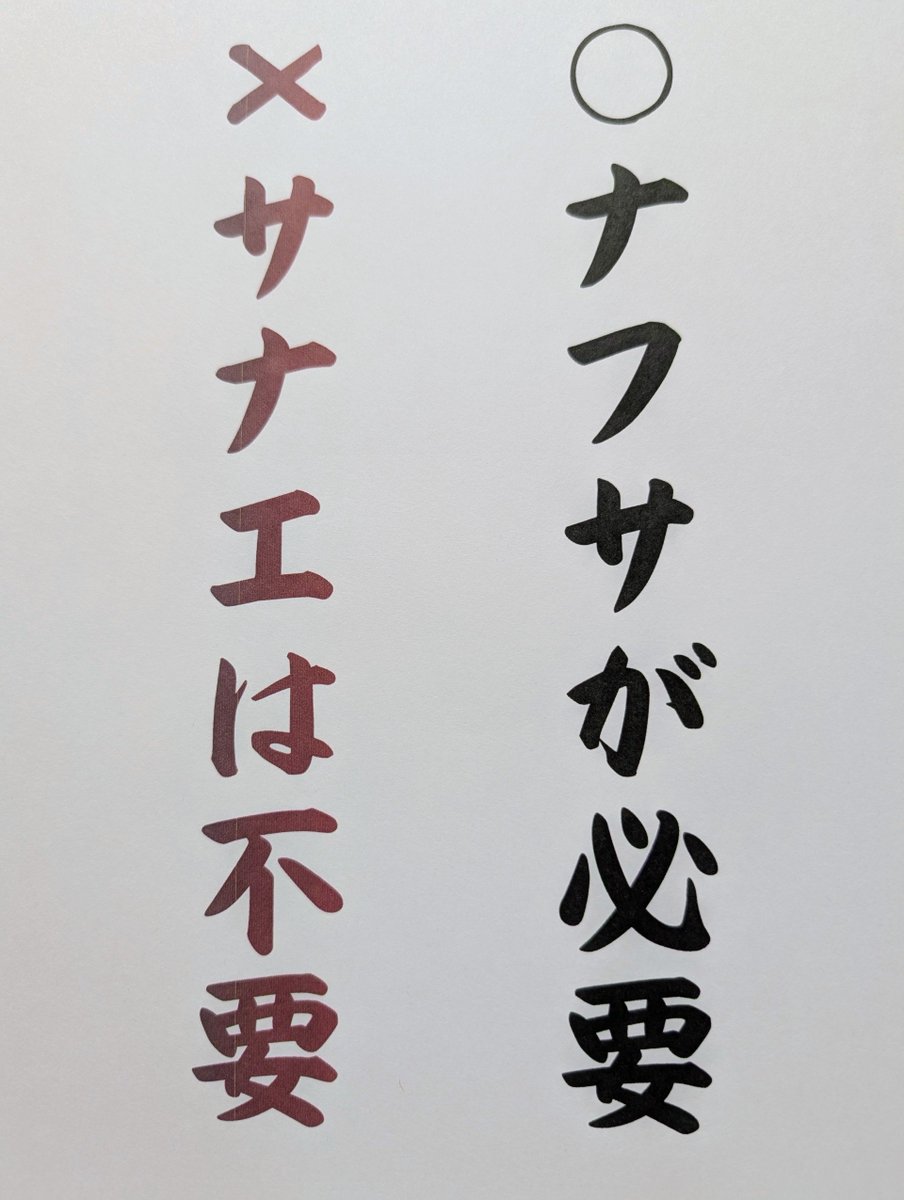 ○ナフサが必要
×サナエは不要